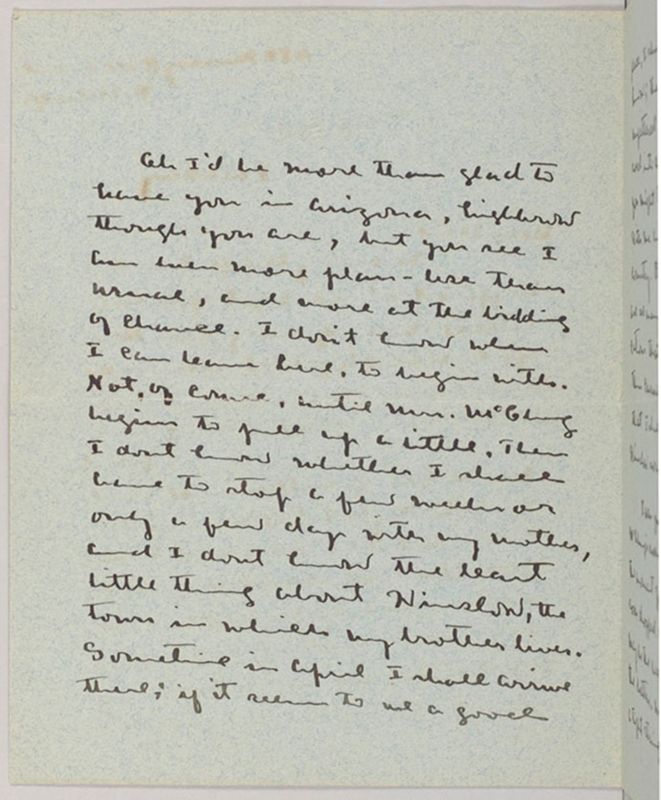 Ah I'd be more than glad to
have you in Arizona, highbrow
though you are, but you see I
am even more plan-less than
usual, and more at the bidding
of chance. I don't know when
I can leave here, to begin with.
Not, of course, until Mrs. McClung
begins to pull up a little. Then
I dont know whether I shall
have to stop a few weeks or
only a few days with my mother,
and I dont know the least
little thing about Winslow, the
town in which my brother lives.
Sometime in April I shall arrive
there; if it seems to me a good